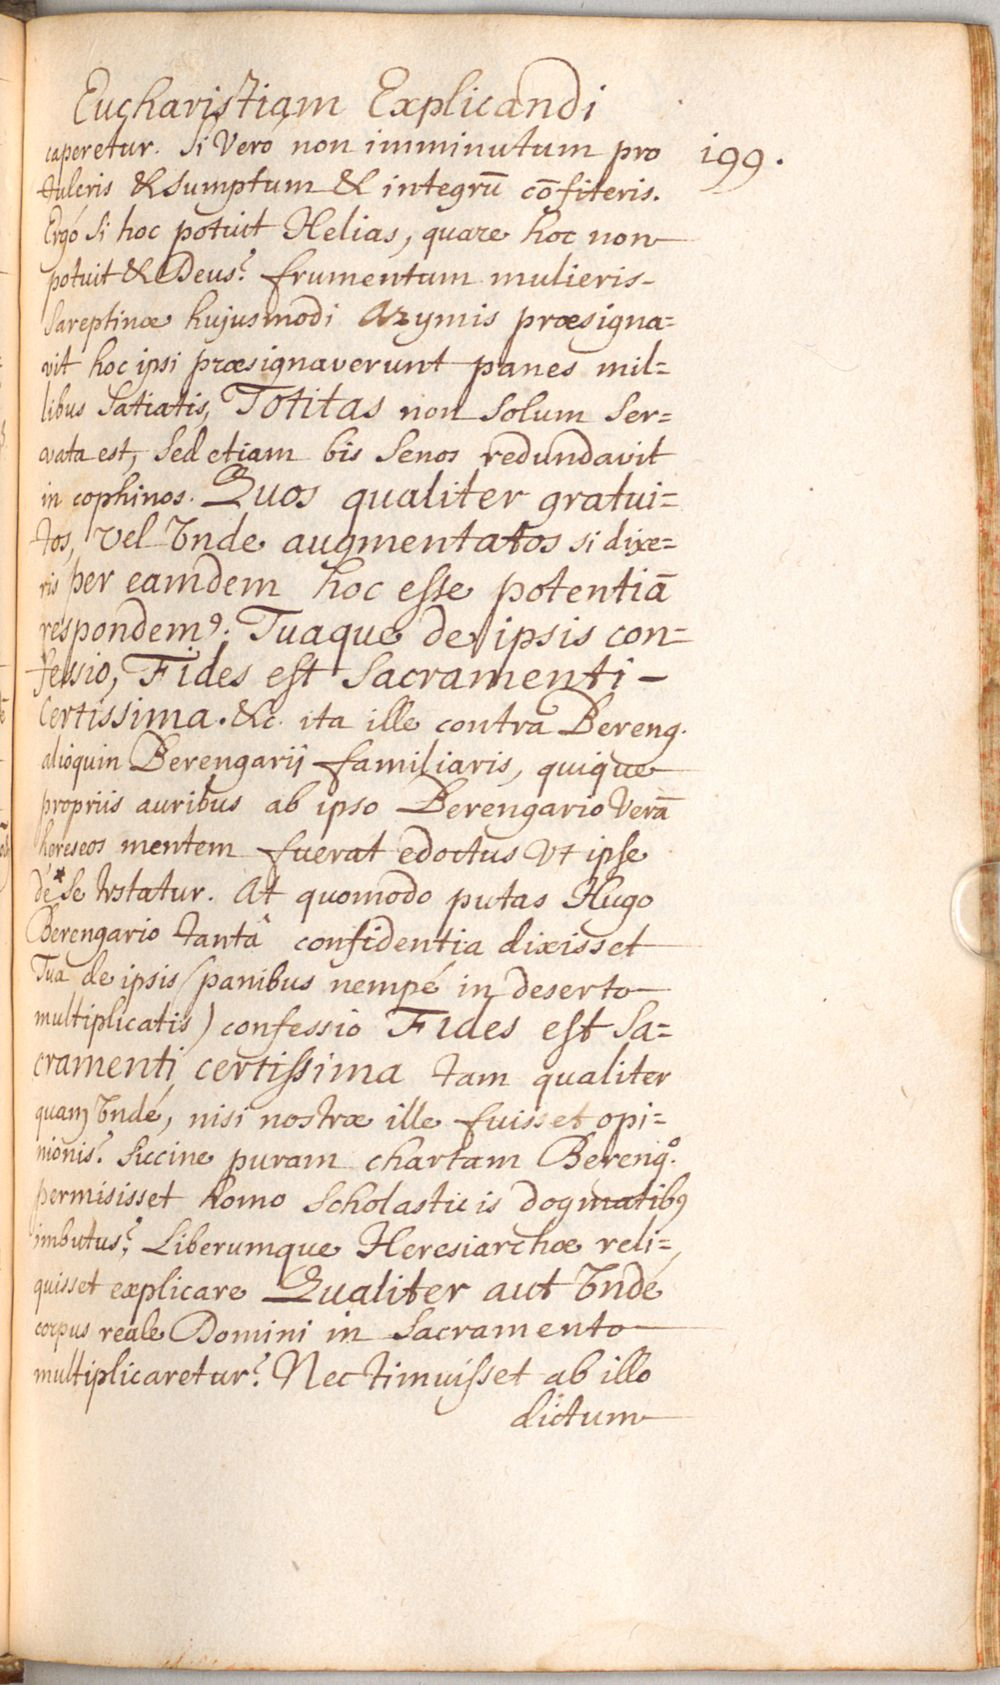 Eucharistiam Explicandi
caperetur. Si Veró non imminutum pro
199.
tuleris & sumptum & integrū cōfiteris.
Ergó Si hoc potuit Helias, quare hoc non
potuit & Deus? frumentum mulieris
Sareptinæ hujusmodi Azymis præsigna=
vit hoc ipsi præsignaverunt panes mil=
libus Satiatis, Totitas non Solum Ser=
vata est, Sed etiam bis Senos redundavit
in cophinos. Quos qualiter gratui=
tos, vel Unde augmentatos si dixe=
ris per eamdem hoc esse potentiā
respondemꝰ. Tuaque de ipsis con=
fessio, Fides est Sacramenti -
Certissima. &c. ita ille contra Bereng.
alioquin Berengarij familiaris, quique
propriis auribus ab ipso Berengario Verā
hereseos mentem fuerat edoctus Vt ipse
de * Se tstatur. At quomodo putas Hugo
Berengario tantâ confidentia dixisset
Tua de ipsis (panibus nempé in deserto
multiplicatis) confessio Fides est Sa=
cramenti certissima tam qualiter
quam Undé, nisi nostræ ille fuisset opi=
nionis? Siccine puram chartam Berengº.
permisisset homo Scholasticis dogmatibꝰ
imbutus? Liberumque Heresiarchæ reli=
quisset explicare Qualiter aut Undé
corpus reale Domini in Sacramento
multiplicaretur? Nec timuisset ab illo
dictum